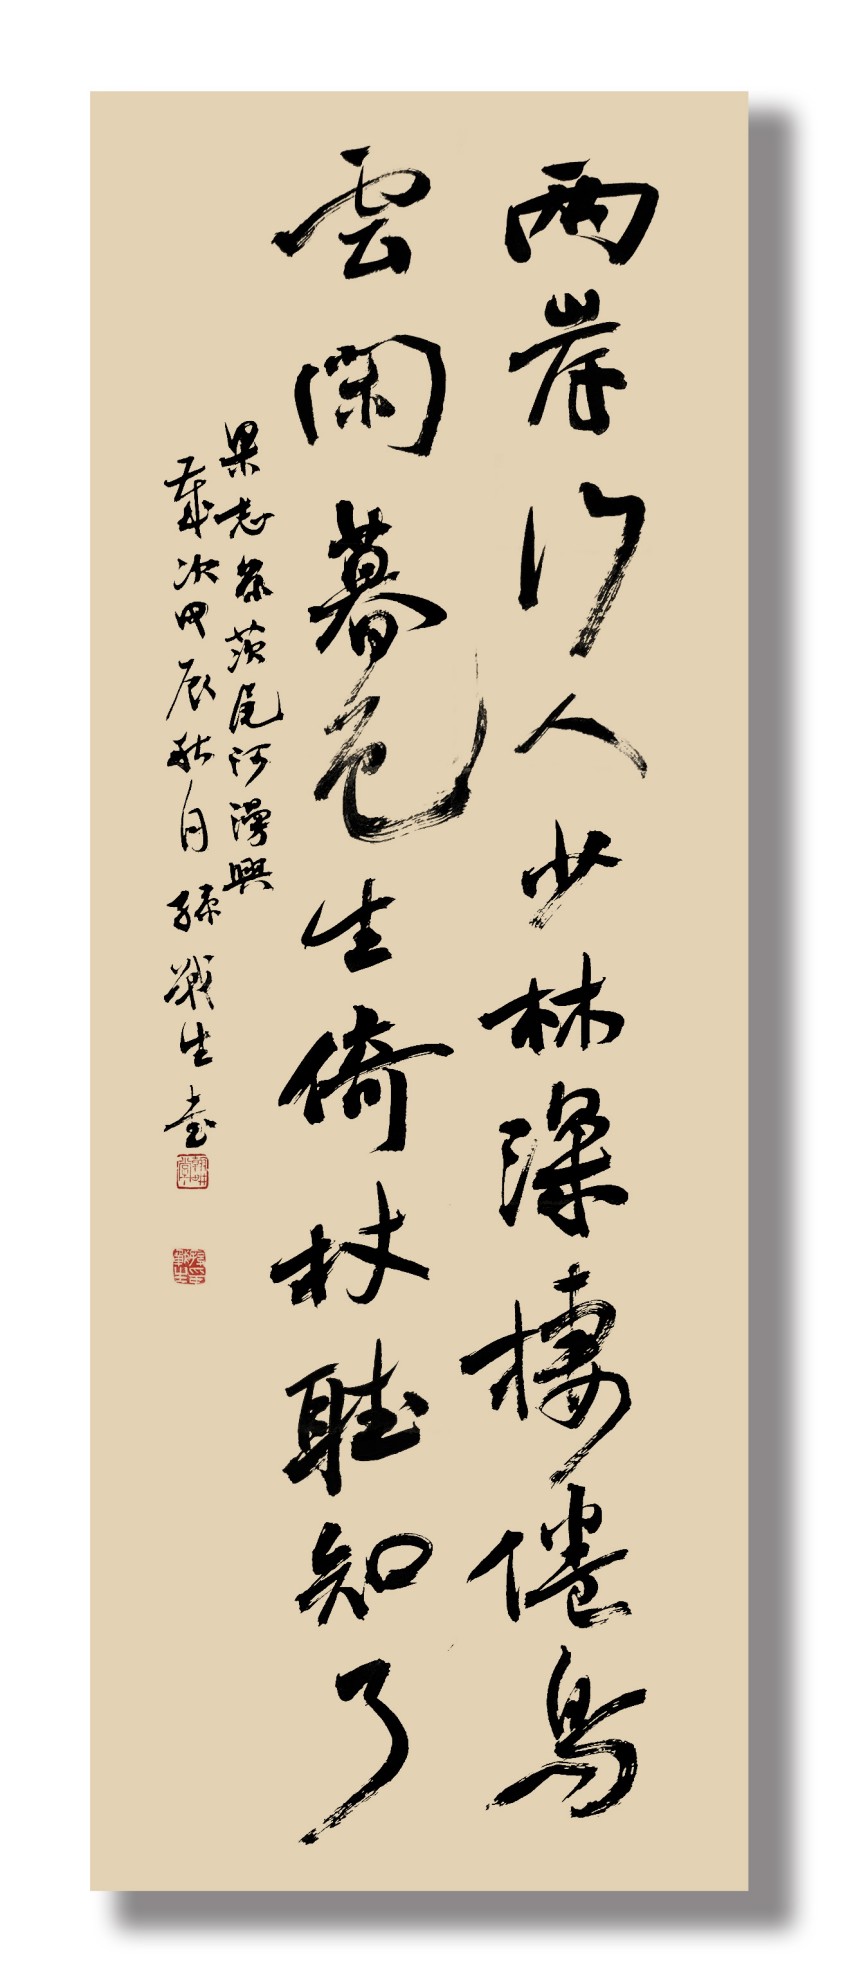 兩岸行人少林深棲倦鳥
雲閑暮色生倚杖聽知了
果志㳟茨尾河漫興
歲次甲辰秋月孫戰生書